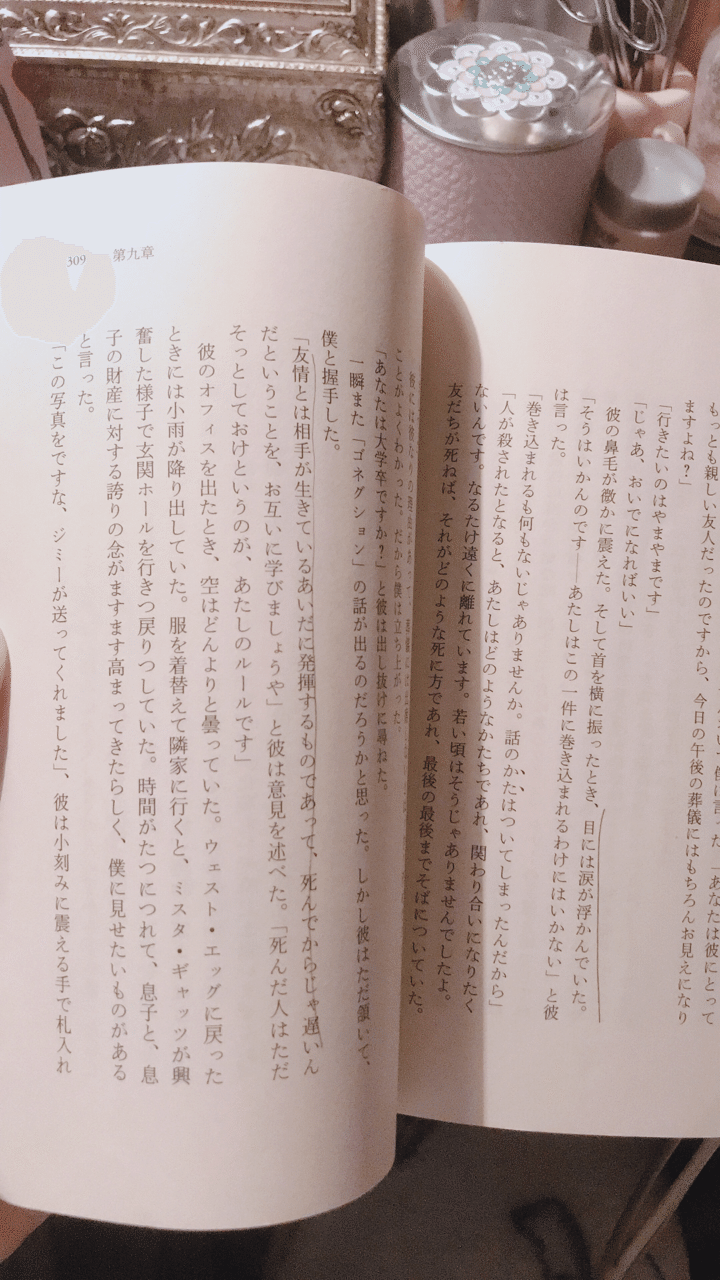 もっとも親しい友人だったのですから、今日の午後の葬儀にはもちろんお見えになり
ますよね？」
「行きたいのはやまやまです」
「じゃあ、おいでになればいい」
彼の鼻毛が微かに震えた。そして首を横に振ったとき、目には涙が浮かんでいた。
「そうはいかんのです――あたしはこの一件に巻き込まれるわけにはいかない」と彼
は言った。
「巻き込まれるも何もないじゃありませんか。話のかたはついてしまったんだから」
「人が殺されたとなると、あたしはどのようなかたちであれ、関わり合いになりたく
ないんです。なるたけ遠くに離れています。若い頃はそうじゃありませんでしたよ。
友だちが死ねば、それがどのような死に方であれ、最後の最後までそばについていた。
309 第九章
ことがよくわかった。だから僕は立ち上がった。
「あなたは大学卒ですか？」と彼は出し抜けに尋ねた。
一瞬また「ゴネグション」の話が出るのだろうかと思った。しかし彼はただ頷いて、
僕と握手した。
「友情とは相手が生きているあいだに発揮するものであって、死んでからじゃ遅いん
だということを、お互いに学びましょうや」と彼は意見を述べた。「死んだ人はただ
そっとしておけというのが、あたしのルールです」
彼のオフィスを出たとき、空はどんよりと曇っていた。ウェスト・エッグに戻った
ときには小雨が降り出していた。服を着替えて隣家に行くと、ミスタ・ギャッツが興
奮した様子で玄関ホールを行きつ戻りつしていた。時間がたつにつれて、息子と、息
子の財産に対する誇りの念がますます高まってきたらしく、僕に見せたいものがある
と言った。
「この写真をですな、ジミーが送ってくれました」、彼は小刻みに震える手で札入れ